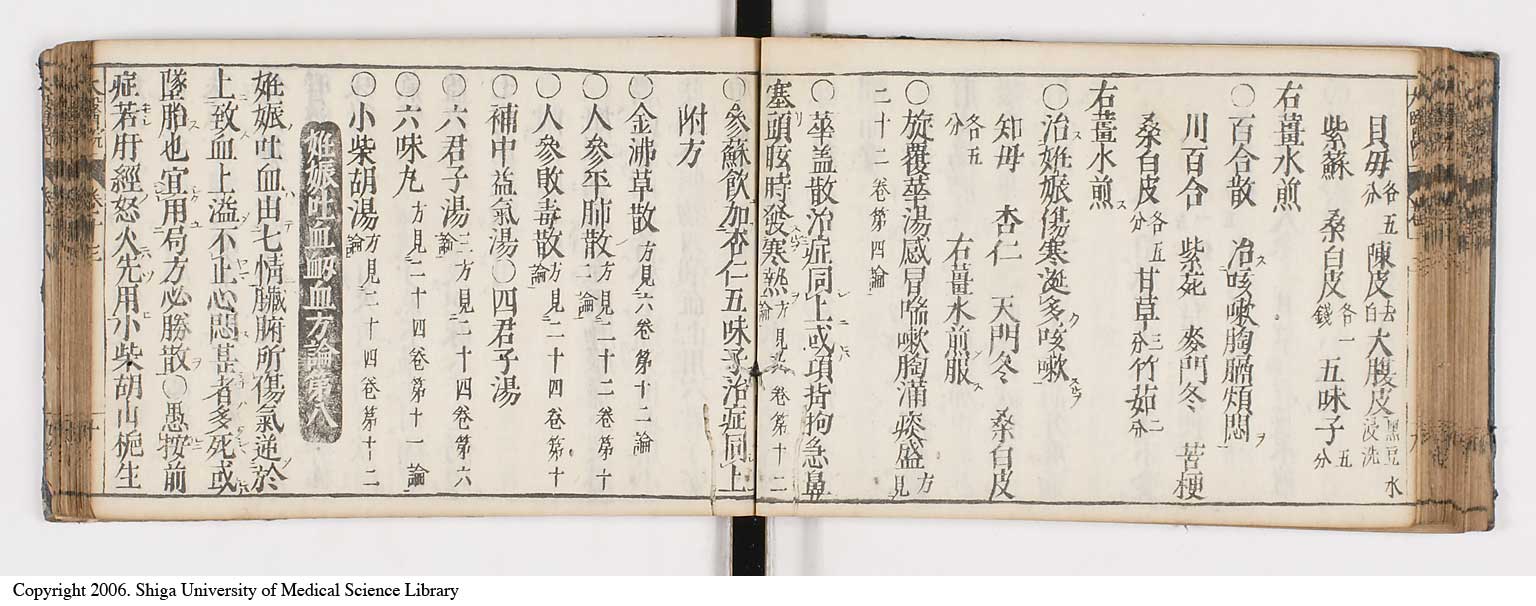 貝母各五分陳皮去白大腹皮黒豆水浸洗
紫蘇 桑白皮各一錢 五味子五分
右薑水煎
○百合散 治咳嗽胸膈煩悶
川百合 紫菀 麥門冬 苦梗
桑白皮各五分甘草三分竹茹二分
右薑水煎
○治姙娠傷寒涎多咳嗽
知母 杏仁 天門冬 桑白皮
各五分 右薑水煎服
○旋覆華湯感冒喘嗽胸滿痰盛方見
二十二卷第四論
○華盖散治症同上或項背拘急鼻
塞頭眩時發寒熱方見 卷第十二論
○參蘇飲加杏仁五味子治症同上
附方
○金沸草散方見六卷第十二論
○人參平肺散方見二十二卷第十二論
○人參敗毒散方見二十四卷第十論
○補中益氣湯○四君子湯
○六君子湯三方見二十四卷第六論
○六味丸方見二十四卷第十一論
○小柴胡湯方見二十四卷第十二論
姙娠吐血衂血方論第八
姙娠吐血出七情臟腑所傷氣逆於
上致血上溢不止心悶甚者多死或
墜胎也宜用局方必勝散○愚按前
症若肝經怒火先用小柴胡山梔生
Copyright 2006. Shiga University of Medical Science Library